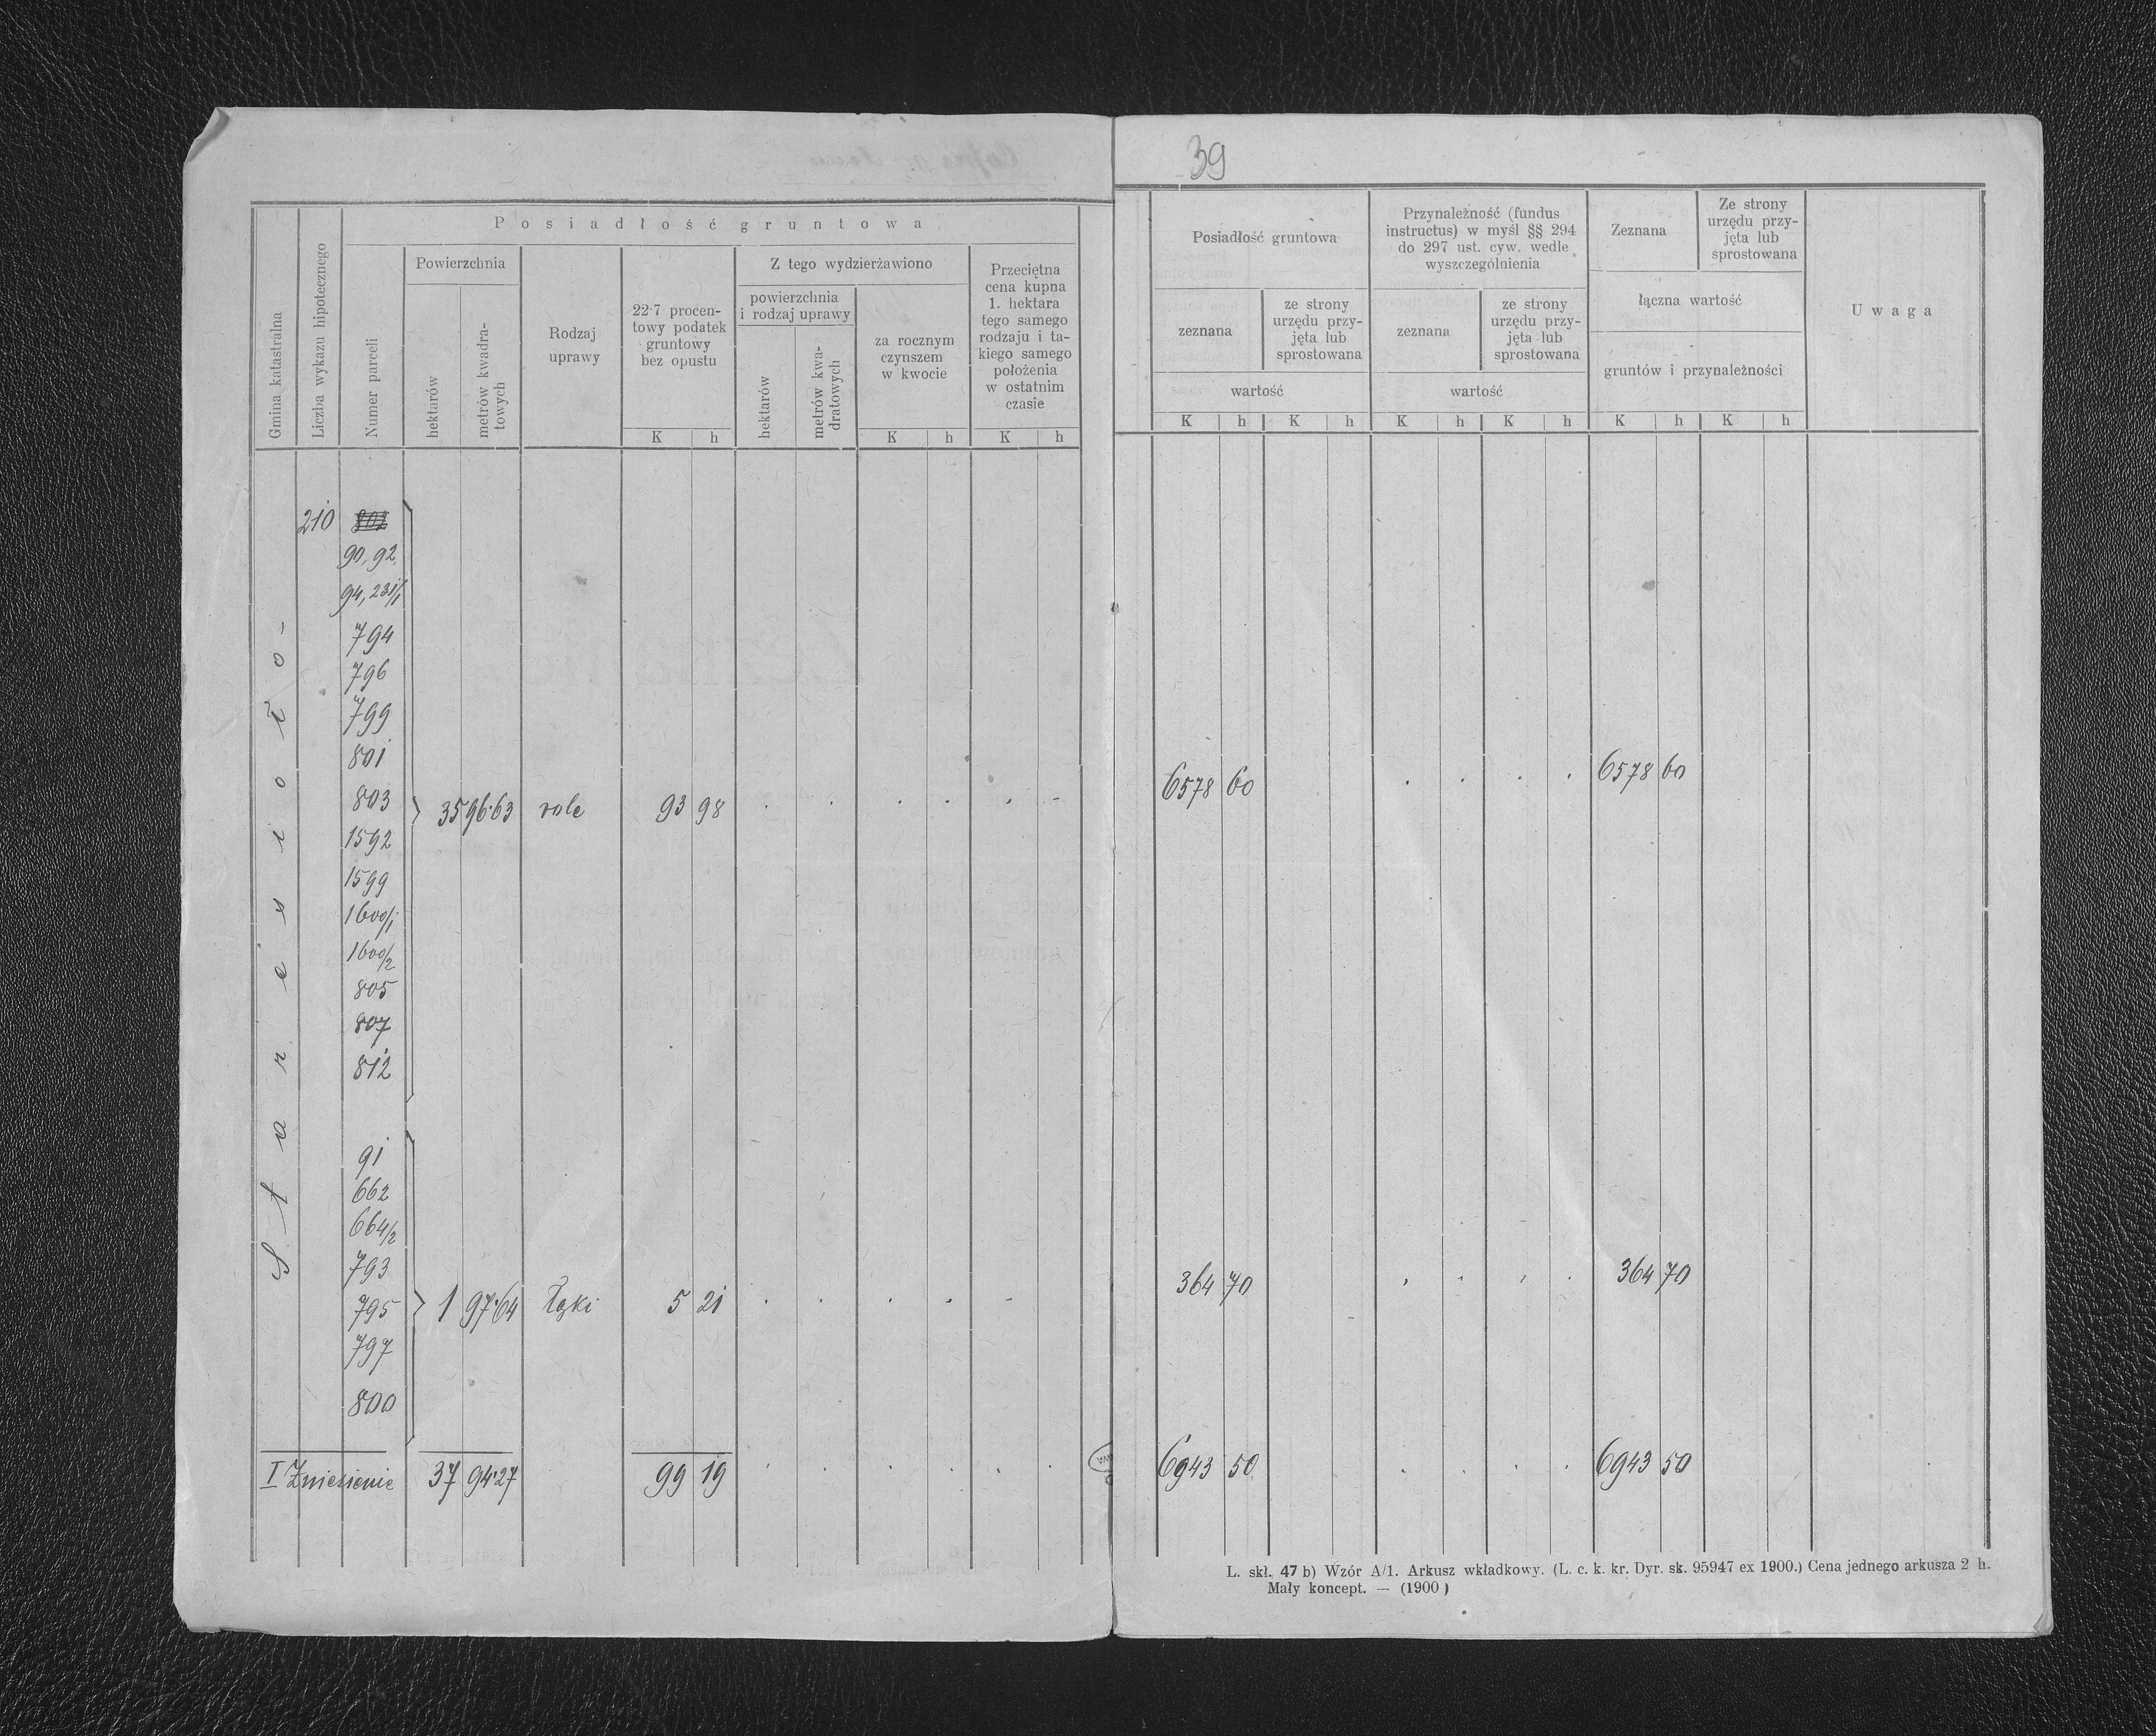 39
Posiadłość gruntowa
Gmina katastralna
Liczba wykazu hipotecznego
Numer parceli
Powierzchnia
hektarów
metrów kwadra-
towych
Rodzaj
uprawy
22·7 procen-
towy podatek
gruntowy
bez opustu
K h
Z tego wydzierżawiono
powierzchnia
i rodzaj uprawy
hektarów
metrów kwa-
dratowych
za rocznym
czynszem
w kwocie
K h
Przeciętna
cena kupna
1. hektara
tego samego
rodzaju i ta-
kiego samego
położenia
w ostatnim
czasie
K h
Posiadłość gruntowa
zeznana
ze strony
urzędu przy-
jęta lub
sprostowana
wartość
K h K h
Przynależność (fundus
instructus) w myśl §§ 294
do 297 ust. cyw. wedle
wyszczególnienia
zeznana
ze strony
urzędu przy-
jęta lub
sprostowana
wartość
K h K h
Zeznana
Ze strony
urzędu przy-
jęta lub
sprostowana
łączna wartość
gruntów i przynależności
K h K h
Uwaga
Staresioło-
210
90, 92,
94, 231/1
794
796
799
801
803 35 96·63 role 93 98 6578 60 6578 60
1592
1599
1600/1
1600/2
805
807
812
91
662
664/2
793
795 1 97·64 Łąki 5 21 364 70 364 70
797
800
I Zniesienie 37 94·27 99 19 6943 50 6943 50
L. skł. 47 b) Wzór A/1. Arkusz wkładkowy. (L. c. k. kr. Dyr. sk. 95947 ex 1900.) Cena jednego arkusza 2 h.
Mały koncept. — (1900)